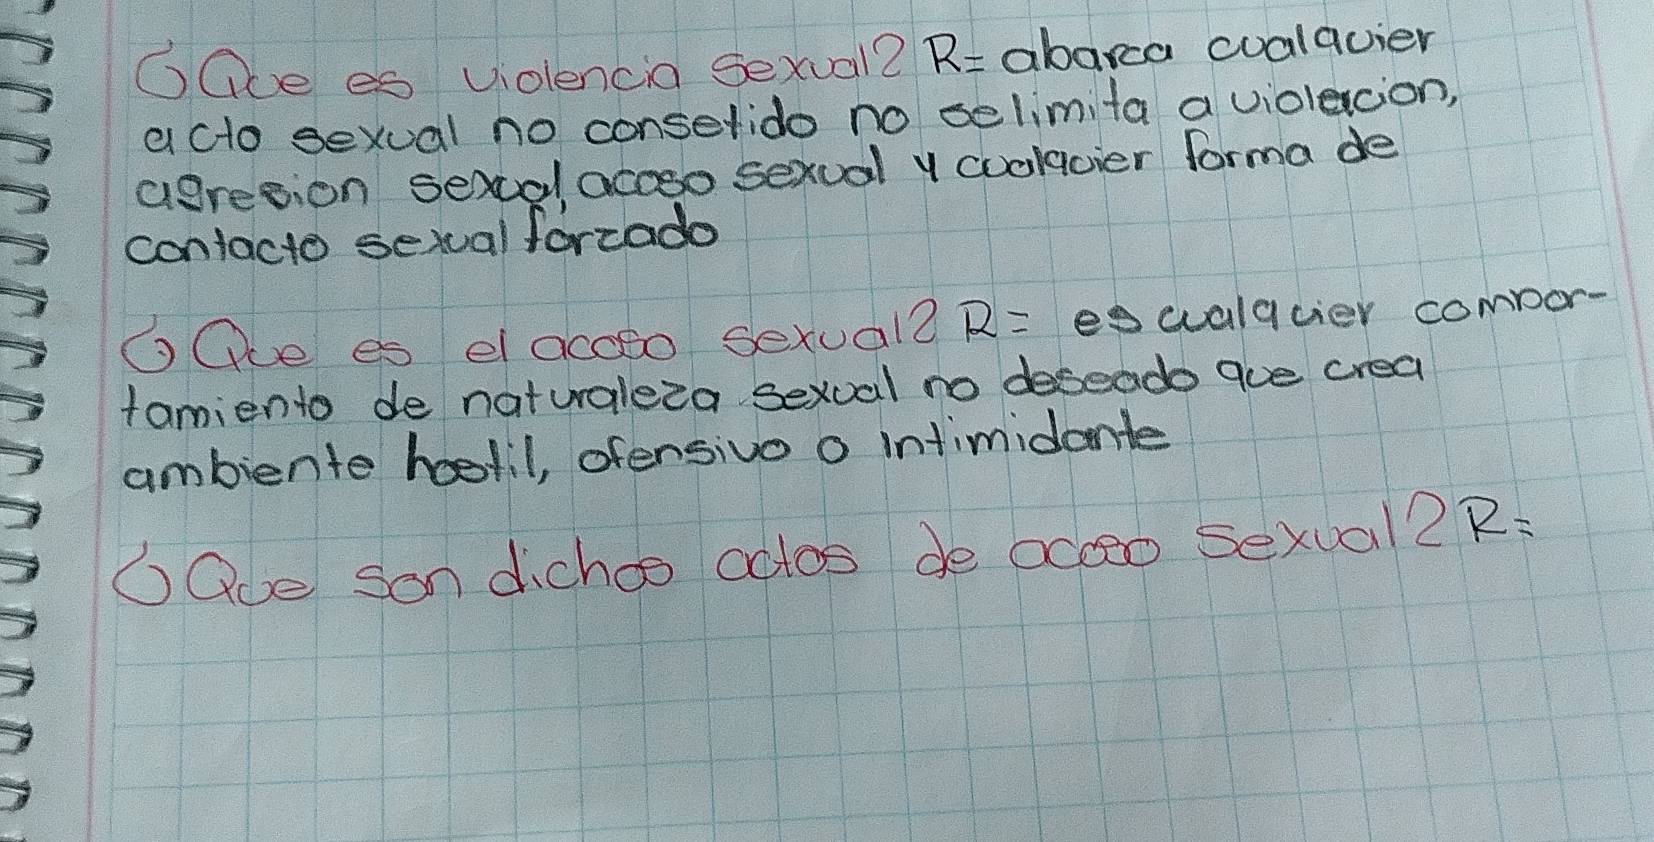 ¿Que es violencia sexual? R= abarca cualquier
acto sexual no consetido no selimita a violacion,
agresion sexual, acoso sexual y cualquier forma de
contacto sexual forzado
¿Que es el acoso sexual? R= es cualquier compor-
tamiento de naturaleza sexual no deseado que crea
ambiente hostil, ofensivo o intimidante
¿Que son dichos actos de acoso sexual? R=